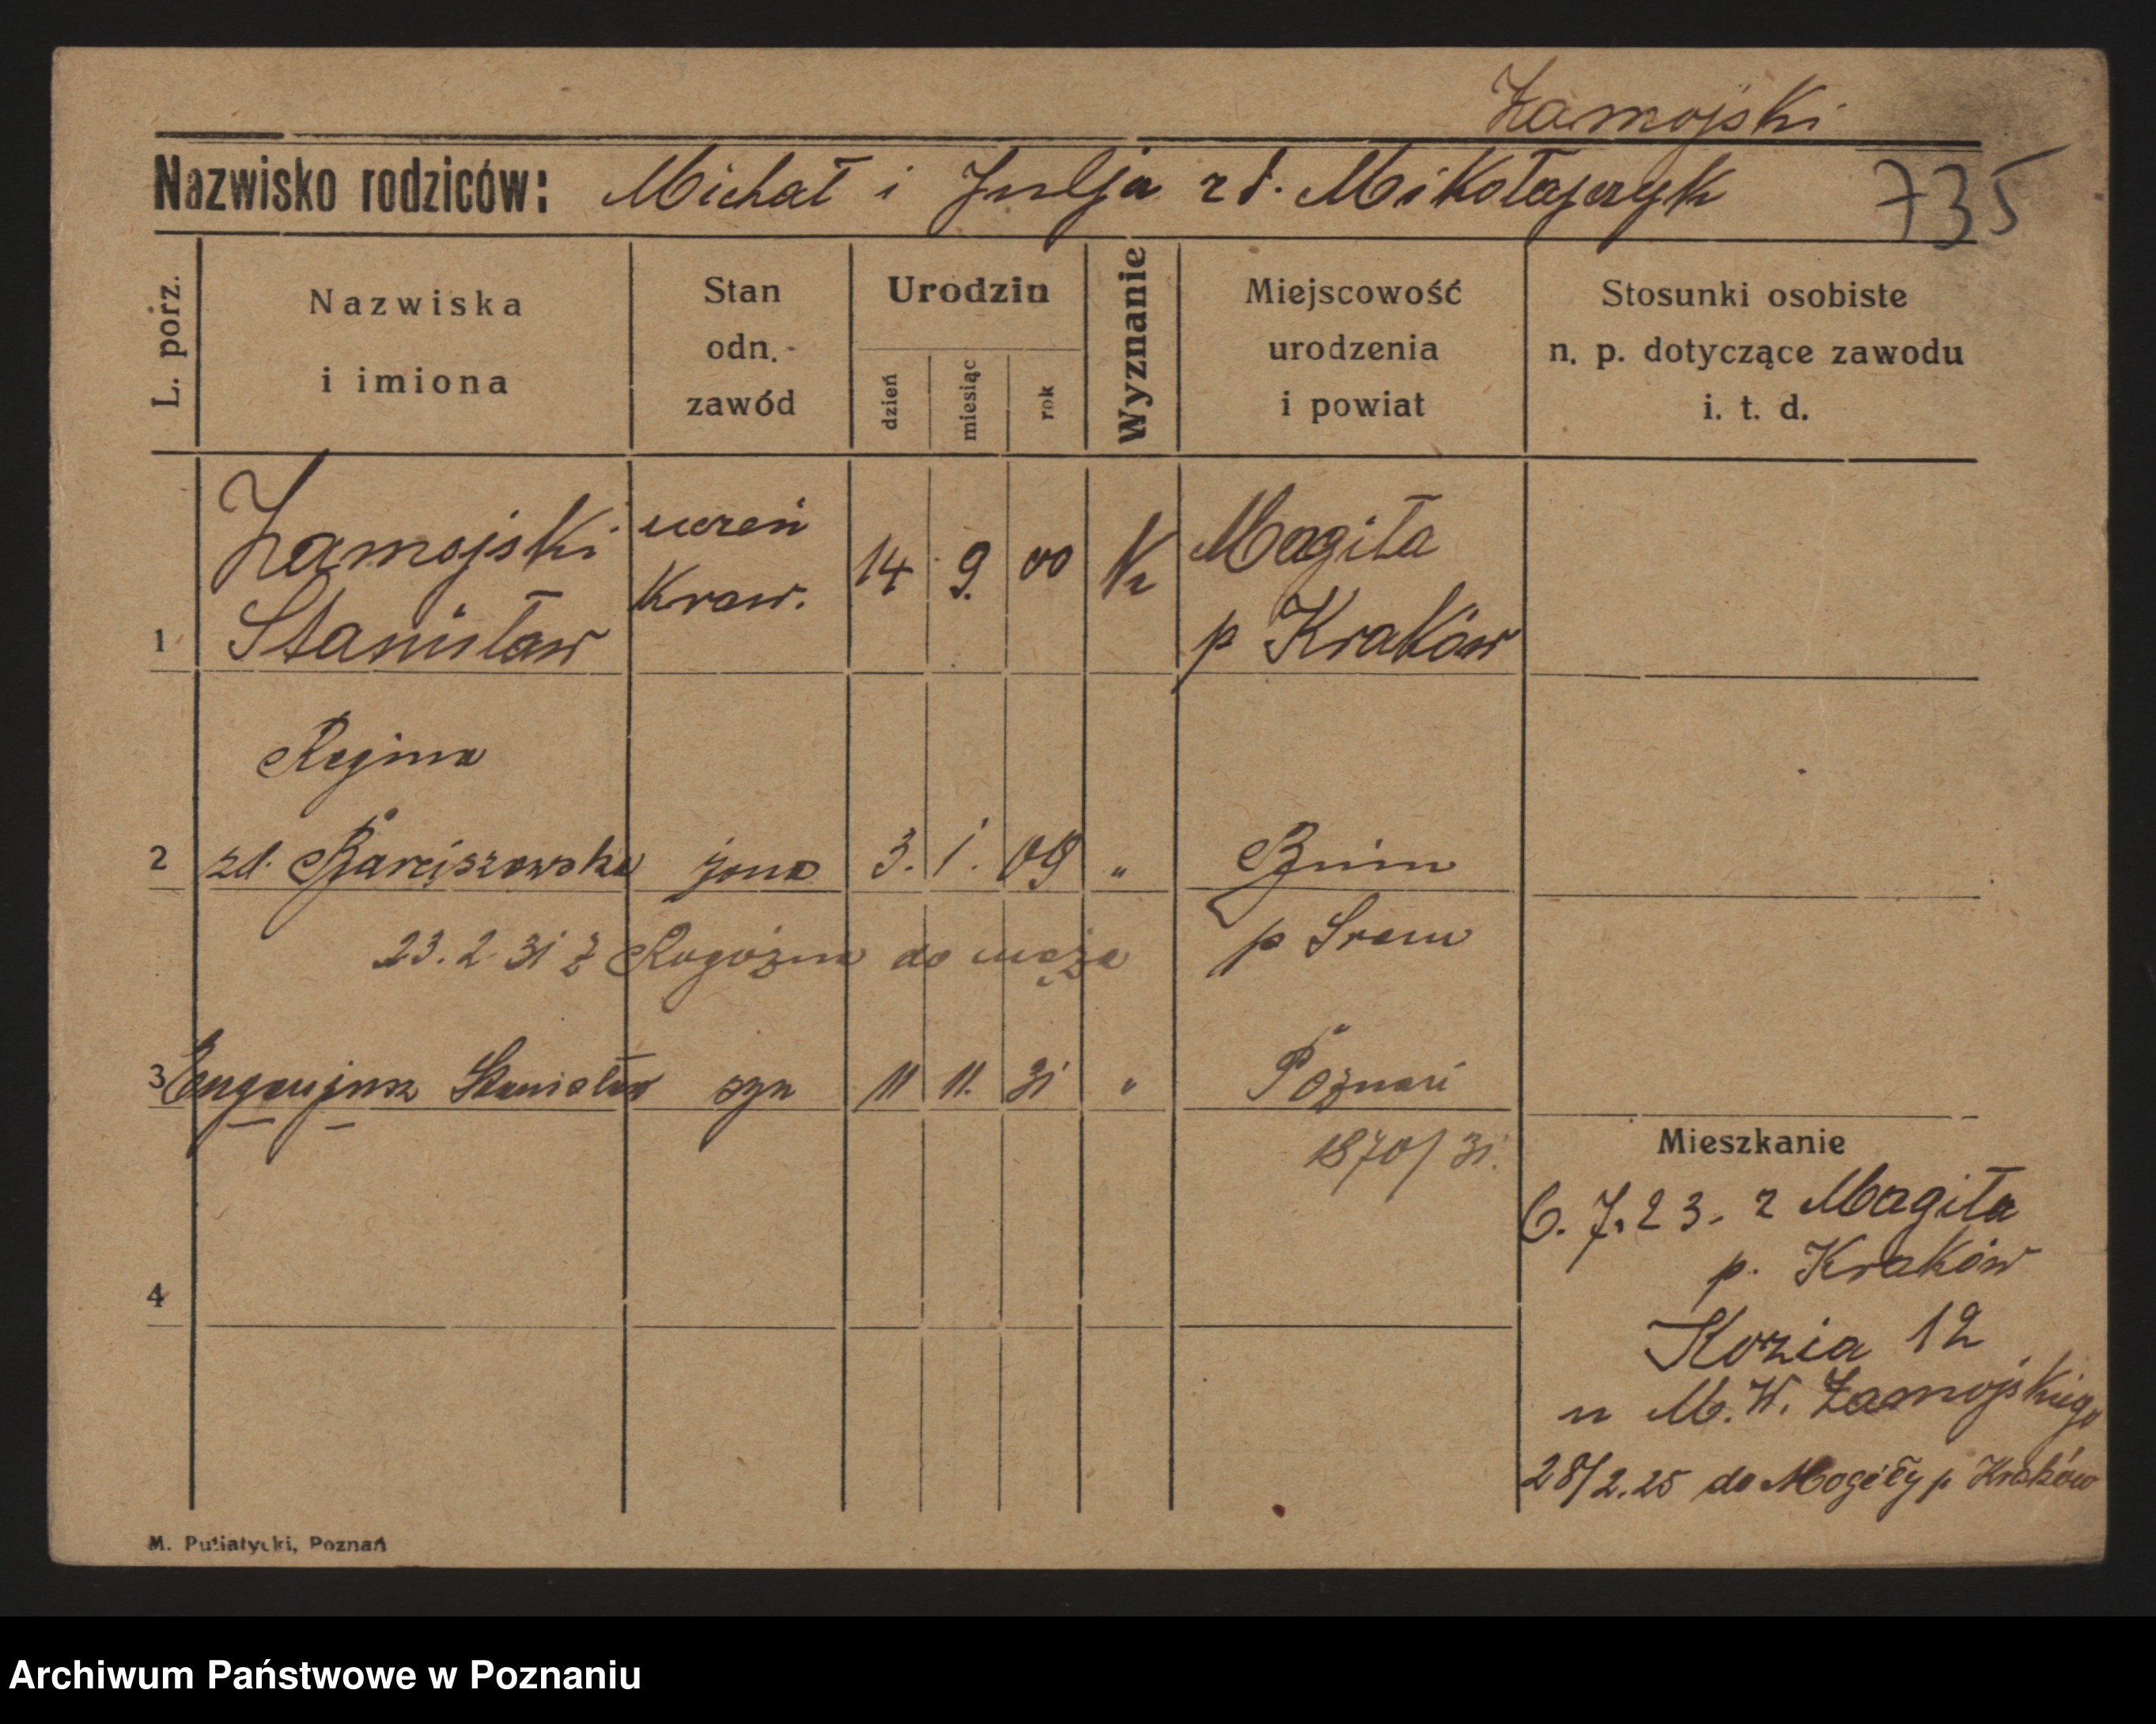 Zamojski
Nazwisko rodziców: Michał i Julja zd. Mikołajczyk 735
L. porz.
Nazwiska
i imiona
Stan
odn.
zawód
Urodzin
dzień
miesiąc
rok
Wyznanie
Miejscowość
urodzenia
i powiat
Stosunki osobiste
n. p. dotyczące zawodu
i. t. d.
1 Zamojski Stanisław uczeń Kraw. 14 9. 00 K Mogiła p Kraków
2 Regina zd. żona 3. 1. 09 " Bnin p Srem
23.2.31 z Rogoźna do męża
3 Stanisław syn 11 11. 31 " Poznań
1870/31.
4
Mieszkanie
6.7.23. z Mogiła
p. Kraków
Kozia 12
u M. W. Zamojskiego
28/2.25 do Mogiły p Kraków
M. Putiatycki, Poznań
Archiwum Państwowe w Poznaniu